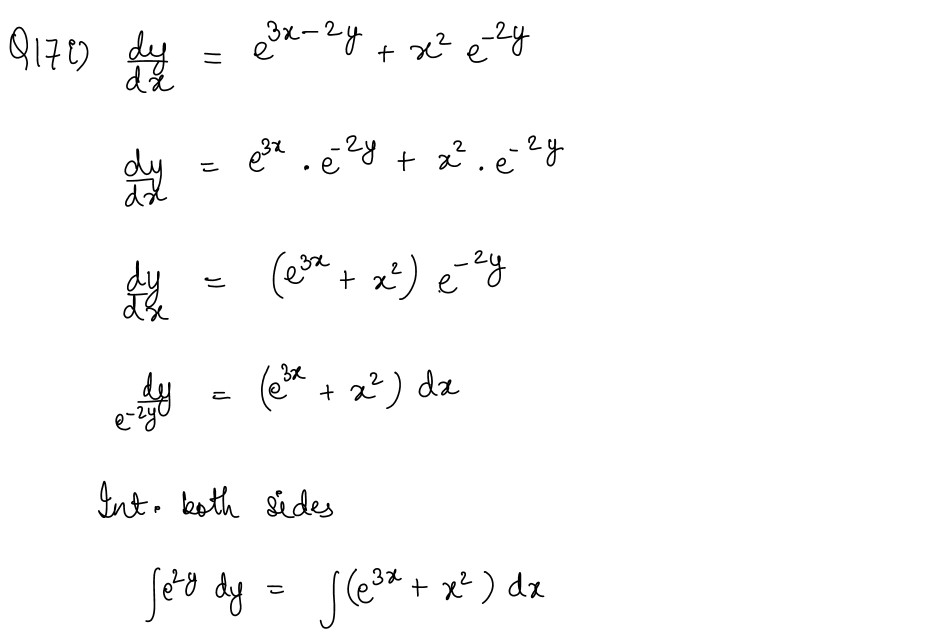 Q17 i) dy/dx = e^{3x-2y} + x² e^{-2y}
dy/dx = e^{3x} . e^{-2y} + x² . e^{-2y}
dy/dx = (e^{3x} + x²) e^{-2y}
dy/e^{-2y} = (e^{3x} + x²) dx
Int. both sides
∫e^{2y} dy = ∫(e^{3x} + x²) dx